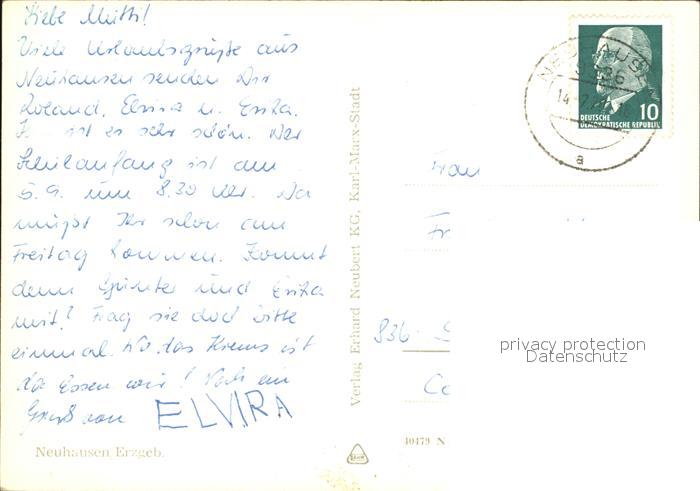 Liebe Mutti!
Viele Urlaubsgrüße aus
Neuhausen senden Dir
Roland, Elvira u. Erika.
ist es sehr schön. Der
Schulanfang ist am
5.9. um 8.30 Uhr. Da
müßt Ihr schon am
Freitag kommen. Kommt
denn Günter und Erika
mit? Frag sie doch bitte
einmal. das ist
da Essen wir! Noch ein
Gruß von ELVIRA
Neuhausen Erzgeb.
Verlag Erhard Neubert KG, Karl-Marx-Stadt
NEUHAUSEN
14
a
10
DEUTSCHE
DEMOKRATISCHE REPUBLIK
Frau
Fr
836
privacy protection
Datenschutz
40479 N